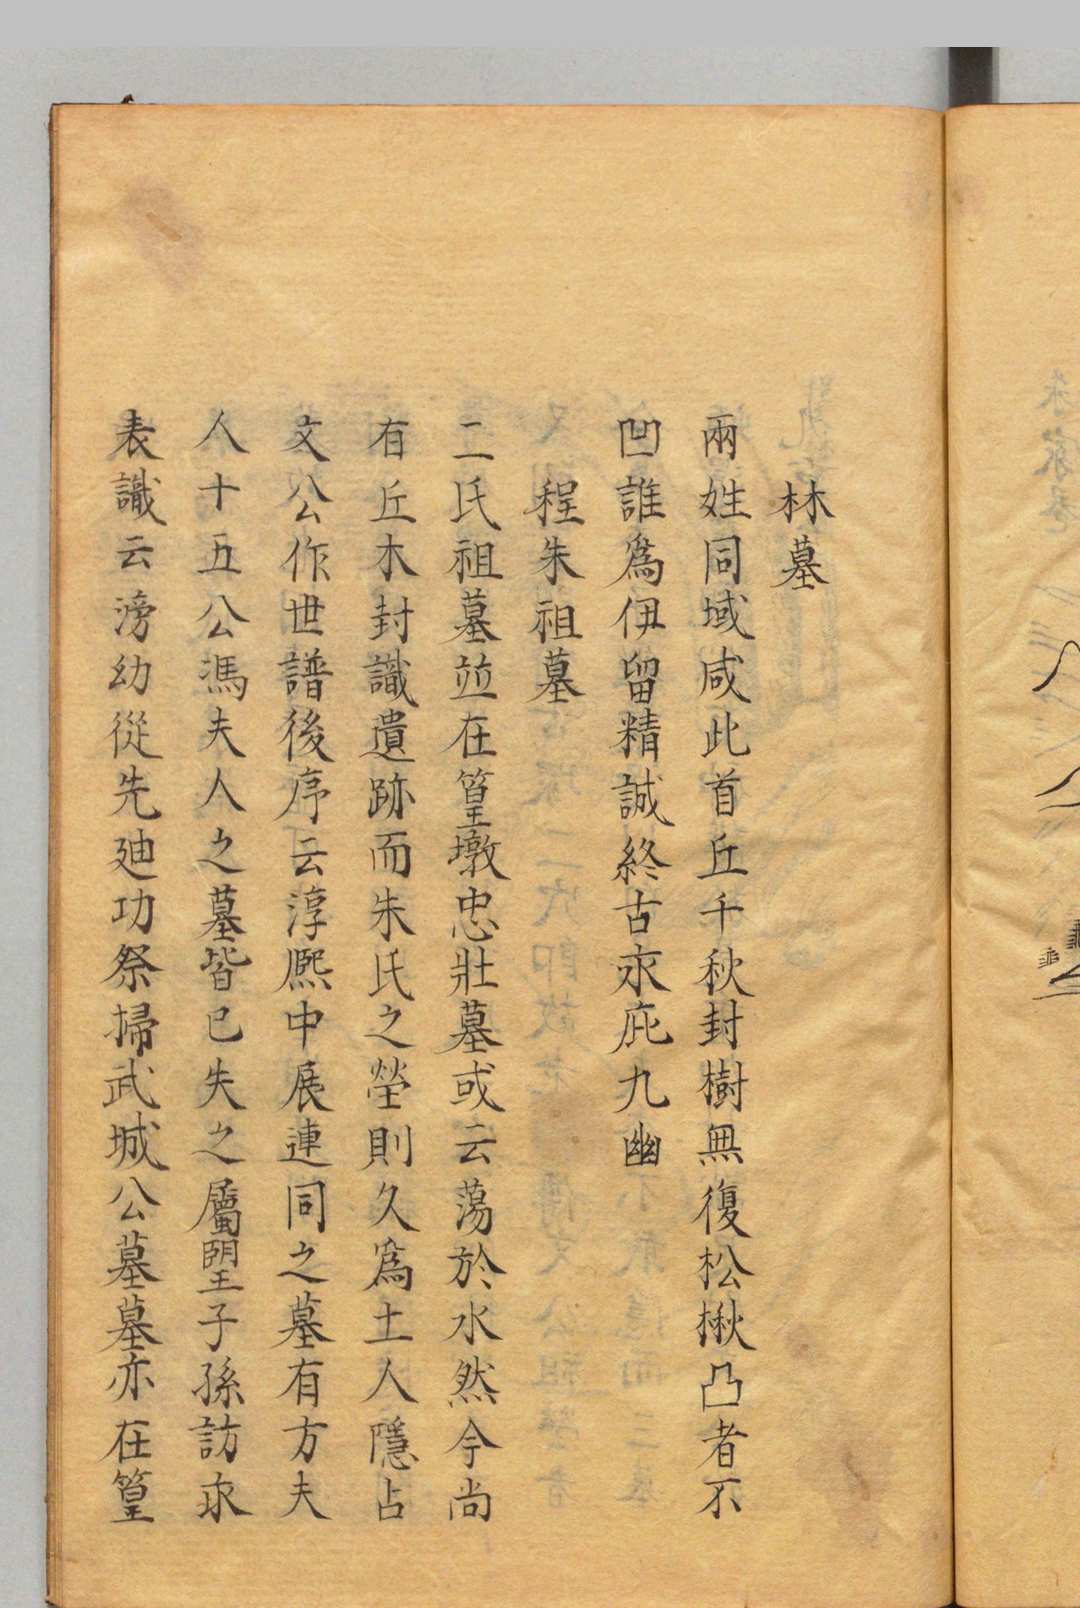 林墓
兩姓同域咸此首丘千秋封樹無復松楸凸者不
凹誰爲伊留精誠終古永庇九幽
程朱祖墓
二氏祖墓並在篁墩忠壯墓或云蕩於水然今尚
有丘木封識遺跡而朱氏之塋則久爲土人隱占
文公作世譜後序云淳熙中展連同之墓有方夫
人十五公馮夫人之墓皆已失之屬望子孫訪求
表識云滂幼從先廸功祭掃武城公墓墓亦在篁